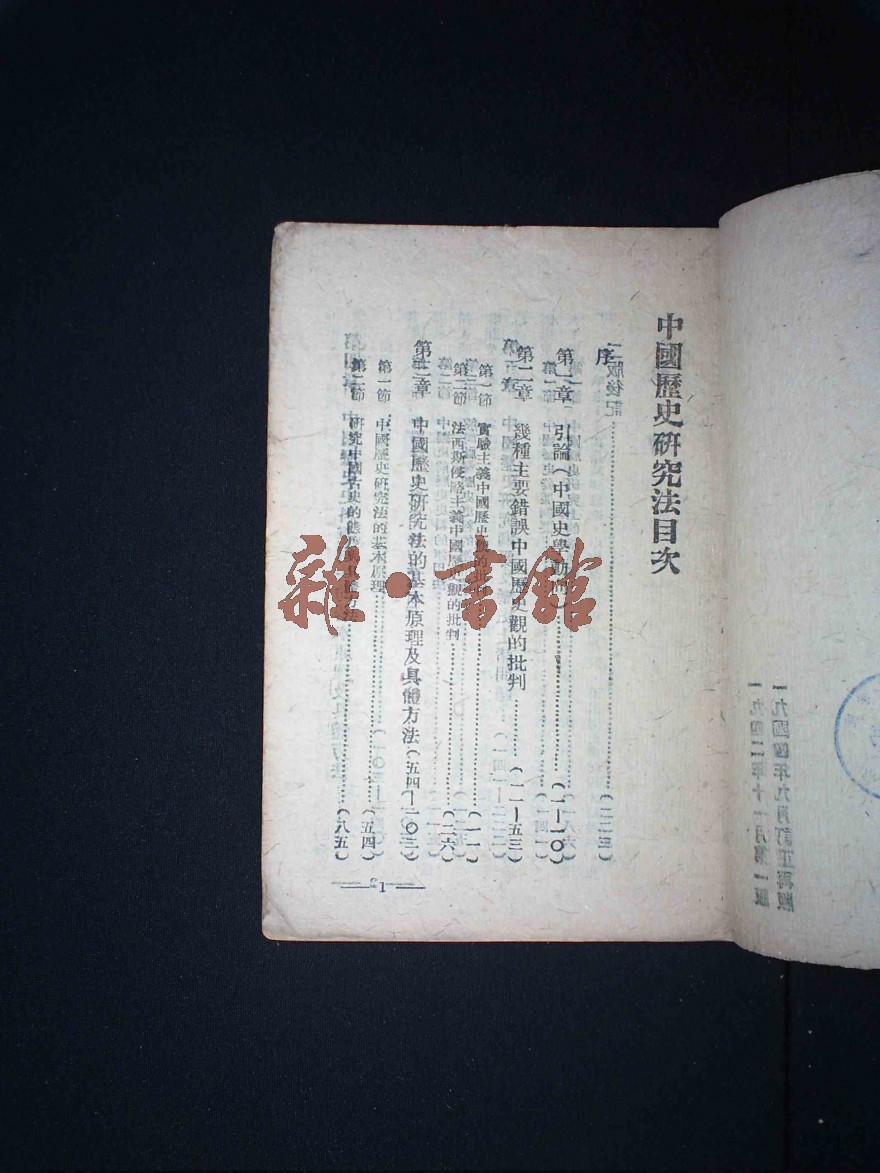 中國歷史研究法目次
序
第一章 引論(中國史學 (一—一〇)
第二章 幾種主要錯誤中國歷史觀的批判 (一一—五三)
第一節 實驗主義中國歷史觀的批判 (一一)
第二節 法西斯侵略主義中國歷史觀的批判 (二六)
第三章 中國歷史研究法的基本原理及具體方法(五四—一〇三)
第一節 中國歷史研究法的基本原理 (五四)
第二節 研究中國古史的 具體方法 (八五)
1
雜·書館
一九四二年十一月第一版
一九四四年九月訂正再版